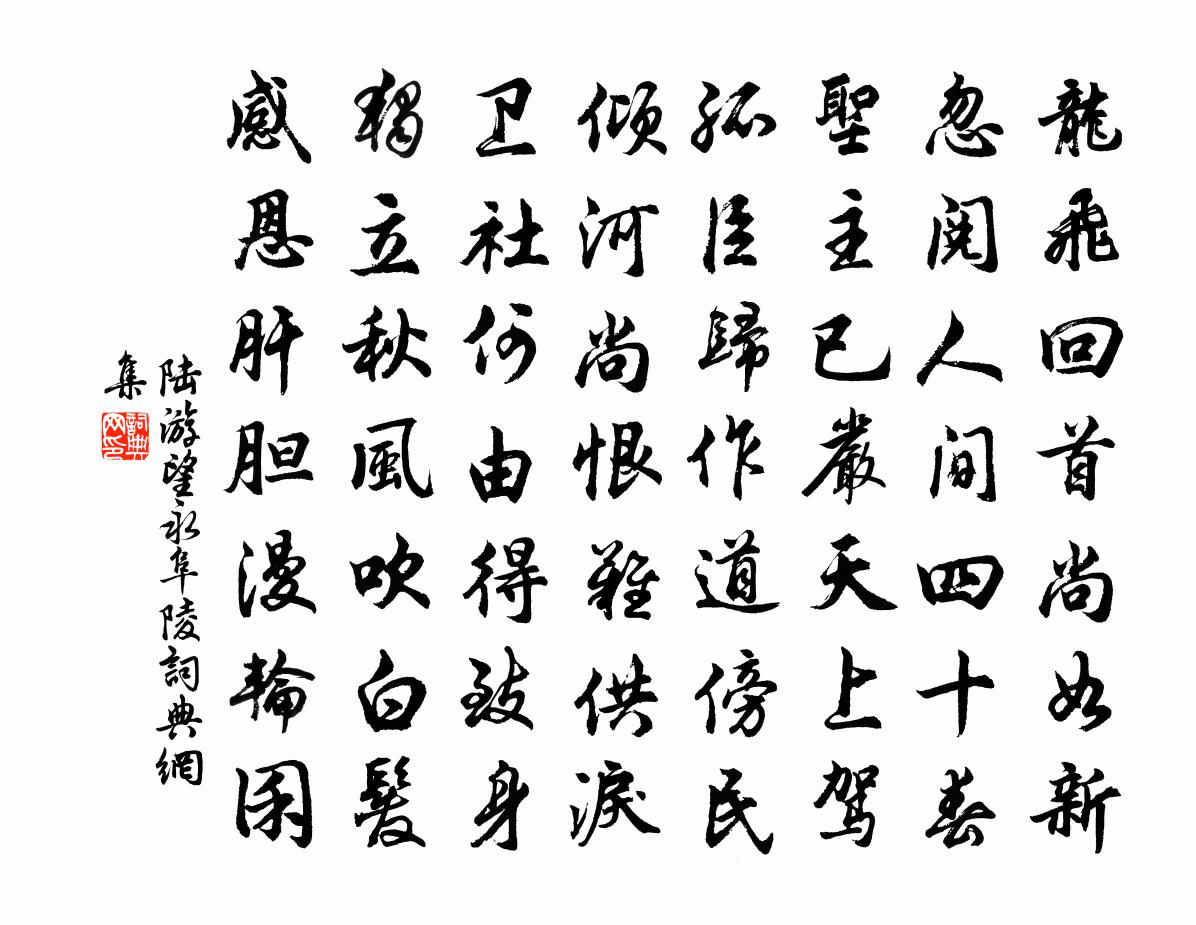 龍飛回首尚如新
忽閱人間四十春
聖主已嚴天上駕
孤臣歸作道傍民
傾河尚恨難供淚
卫社何由得致身
獨立秋風吹白髮
感恩肝胆漫輪囷
陆游望永阜陵詞典網
集
詞典
网印